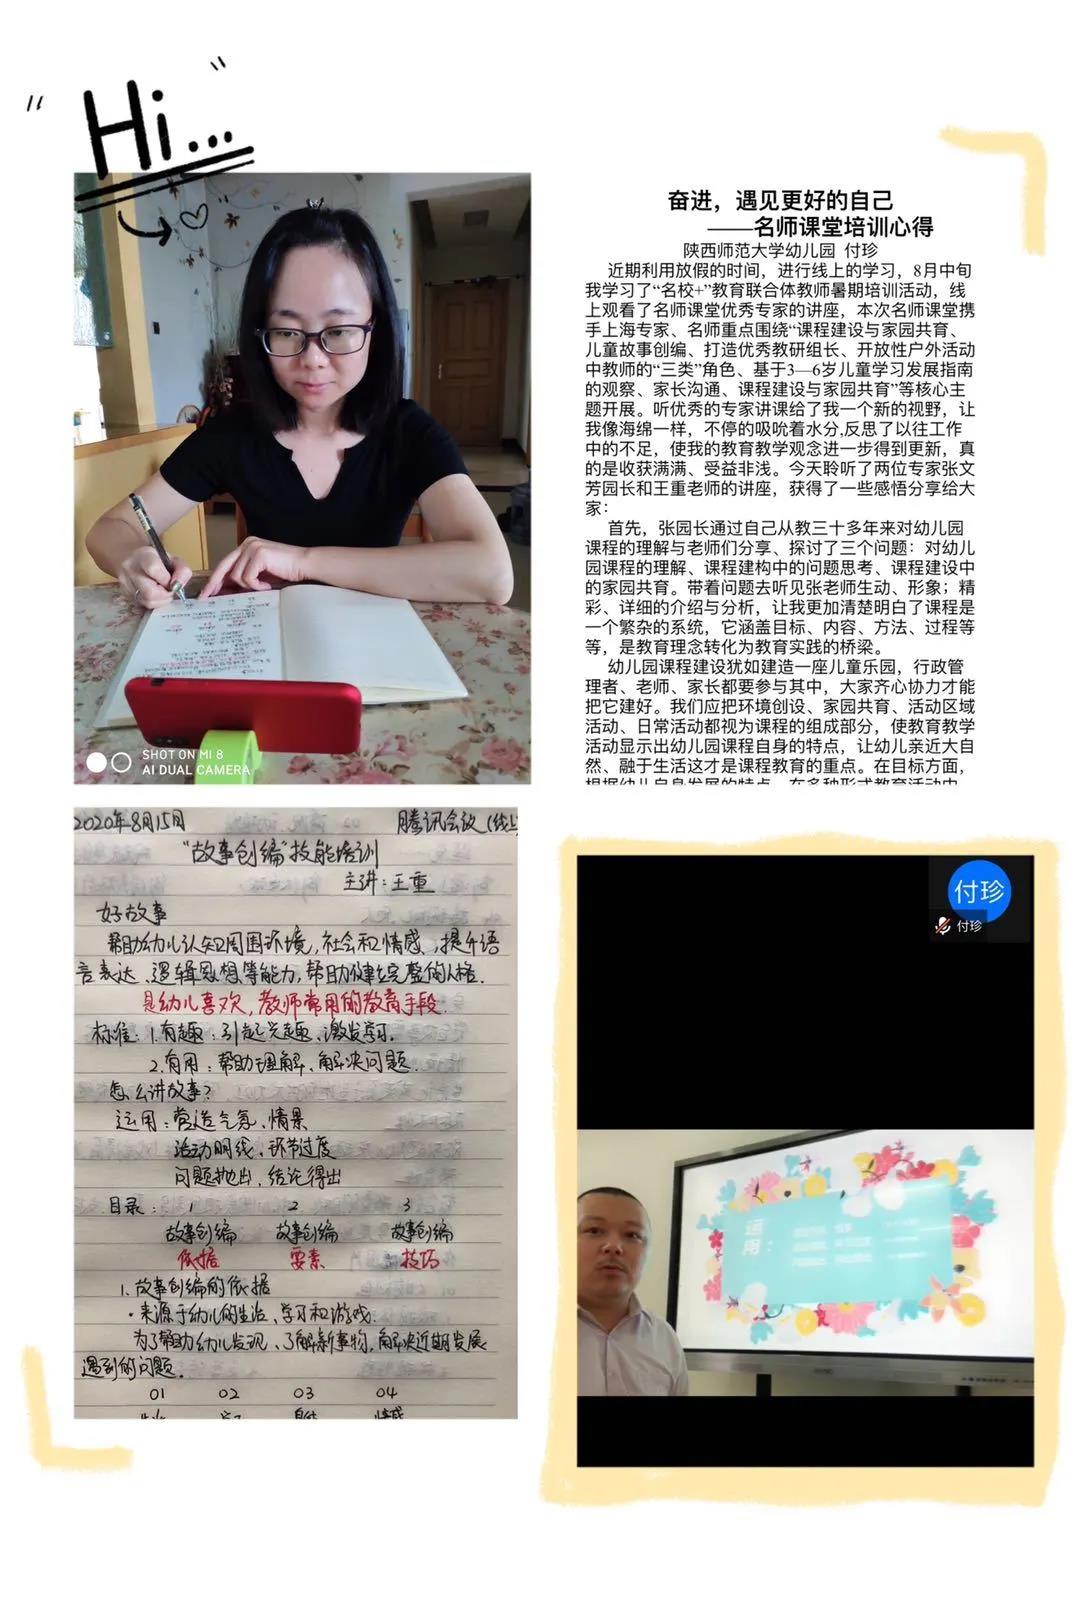 “Hi...”
SHOT ON MI 8
AI DUAL CAMERA
奋进，遇见更好的自己
——名师课堂培训心得
陕西师范大学幼儿园 付珍
近期利用放假的时间，进行线上的学习，8月中旬
我学习了“名校+”教育联合体教师暑期培训活动，线
上观看了名师课堂优秀专家的讲座，本次名师课堂携
手上海专家、名师重点围绕“课程建设与家园共育、
儿童故事创编、打造优秀教研组长、开放性户外活动
中教师的“三类”角色、基于3—6岁儿童学习发展指南
的观察、家长沟通、课程建设与家园共育”等核心主
题开展。听优秀的专家讲课给了我一个新的视野，让
我像海绵一样，不停的吸吮着水分,反思了以往工作
中的不足，使我的教育教学观念进一步得到更新，真
的是收获满满、受益非浅。今天聆听了两位专家张文
芳园长和王重老师的讲座，获得了一些感悟分享给大
家：
首先，张园长通过自己从教三十多年来对幼儿园
课程的理解与老师们分享、探讨了三个问题：对幼儿
园课程的理解、课程建构中的问题思考、课程建设中
的家园共育。带着问题去听见张老师生动、形象；精
彩、详细的介绍与分析，让我更加清楚明白了课程是
一个繁杂的系统，它涵盖目标、内容、方法、过程等
等，是教育理念转化为教育实践的桥梁。
幼儿园课程建设犹如建造一座儿童乐园，行政管
理者、老师、家长都要参与其中，大家齐心协力才能
把它建好。我们应把环境创设、家园共育、活动区域
活动、日常活动都视为课程的组成部分，使教育教学
活动显示出幼儿园课程自身的特点，让幼儿亲近大自
然、融于生活这才是课程教育的重点。在目标方面，
根据幼儿自身发展的特点，在多种形式教育活动中
2020年8月15日 腾讯会议(线上
“故事创编”技能培训
主讲：王重
好故事
帮助幼儿认知周围环境,社会和情感、提升语
言表达、逻辑思想等能力,帮助健全完整的人格.
是幼儿喜欢,教师常用的教育手段.
标准：1.有趣：引起兴趣、激发学习.
2.有用：帮助理解、解决问题.
怎么讲故事?
运用：营造气氛、情景
活动明线、环节过度
问题抛出、结论得出
目录： 1 2 3
故事创编 故事创编 故事创编
依据 要素 技巧
1.故事创编的依据
·来源于幼儿的生活、学习和游戏.
为了帮助幼儿发现、了解新事物,解决近期发展
遇到的问题.
01 02 03 04
付珍
付珍
运用：